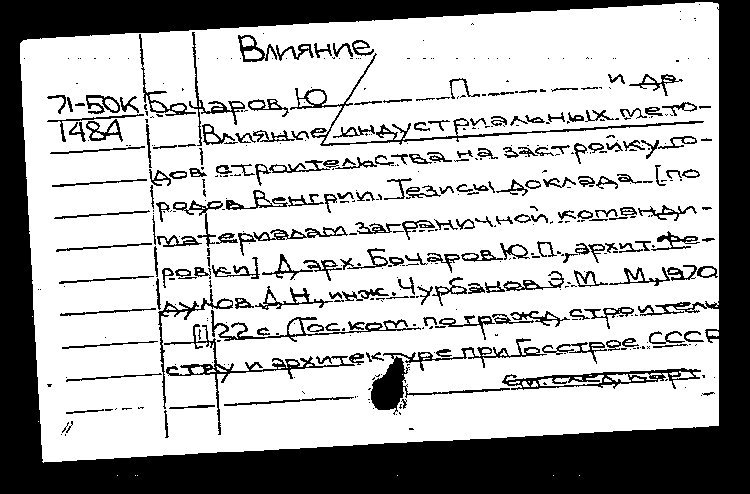 Влияние
71-50К Бочаров, Ю П и др.
1484 Влияние индустриальных мето-
дов строительства на застройку го-
родов Венгрии. Тезисы доклада [по
материалам заграничной команди-
ровки]. Д. арх. Бочаров Ю.П., архит. Фе-
дулов Д.Н., инж. Чурбанов Э.М. М., 1970
[1], 22 с. (Гос. ком. по гражд. строитель-
ству и архитектуре при Госстрое СССР
см. след. карт.